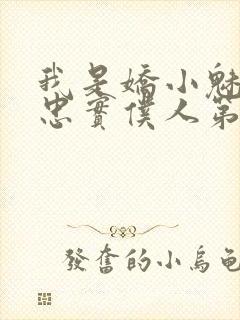 我是嬌小魅
忠實僕人第
發奮的小烏龜